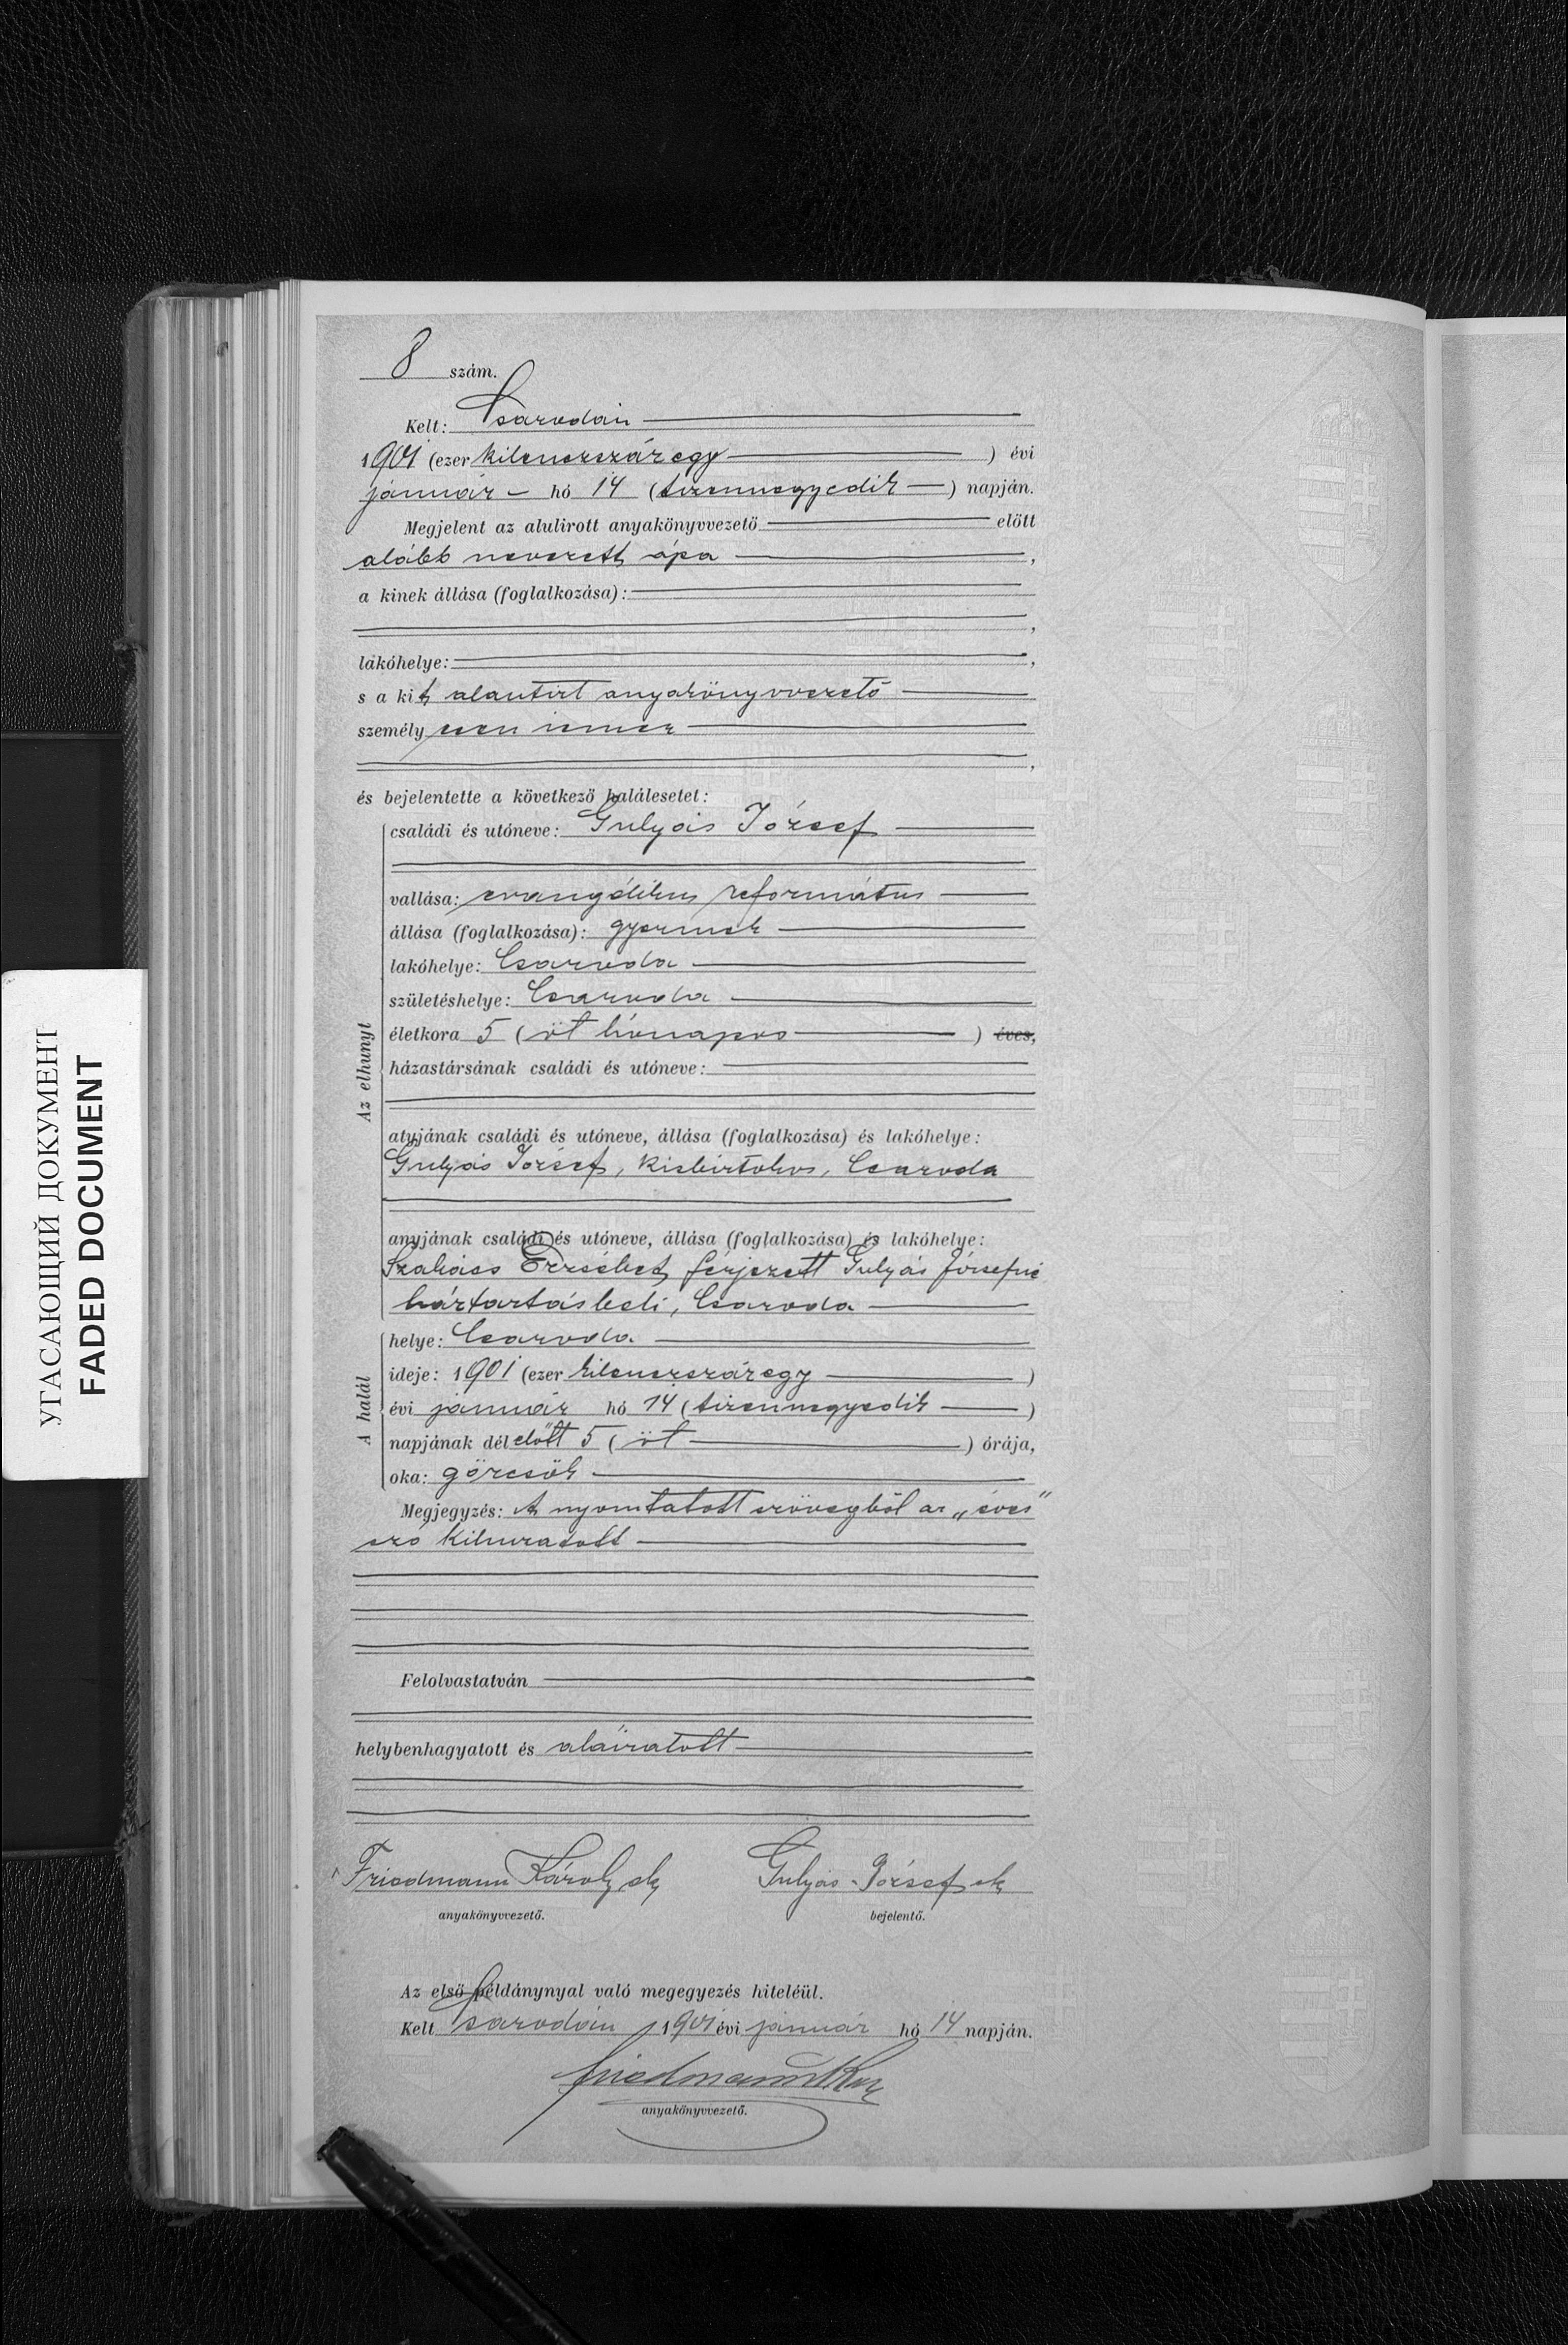 8 szám.
Kelt: Csarodán
1901 (ezer kilenczszáz egy) évi
január hó 14 (tizennegyedik) napján.
Megjelent az alulirott anyakönyvvezető előtt
alább nevezett apa,
a kinek állása (foglalkozása):
,
lakóhelye: ,
s a kit alantirt anyakönyvvezető
személyesen ismer
,
és bejelentette a következő halálesetet:
Az elhunyt
családi és utóneve: Gulyás József
vallása: evangélikus református
állása (foglalkozása): gyermek
lakóhelye: Csaroda
születéshelye: Csaroda
életkora 5 (öt hónapos) éves,
házastársának családi és utóneve:
atyjának családi és utóneve, állása (foglalkozása) és lakóhelye:
Gulyás József, kisbirtokos, Csaroda
anyjának családi és utóneve, állása (foglalkozása) és lakóhelye:
Szakács Erzsébet, férjezett Gulyás Józsefné
háztartásbeli, Csaroda
A halál
helye: Csaroda
ideje: 1901 (ezer kilenczszáz egy)
évi január hó 14 (tizennegyedik)
napjának délelőtt 5 (öt) órája,
oka: görcsök
Megjegyzés: A nyomtatott szövegből az „éves"
szó kihuzatott
Felolvastatván
helybenhagyatott és aláiratott
Friedmann Károly sk Gulyás József sk
anyakönyvvezető. bejelentő.
Az első példánynyal való megegyezés hiteléül.
Kelt Csarodán 1901 évi január hó 14 napján.
Friedmann
anyakönyvvezető.
УГАСАЮЩИЙ ДОКУМЕНТ
FADED DOCUMENT